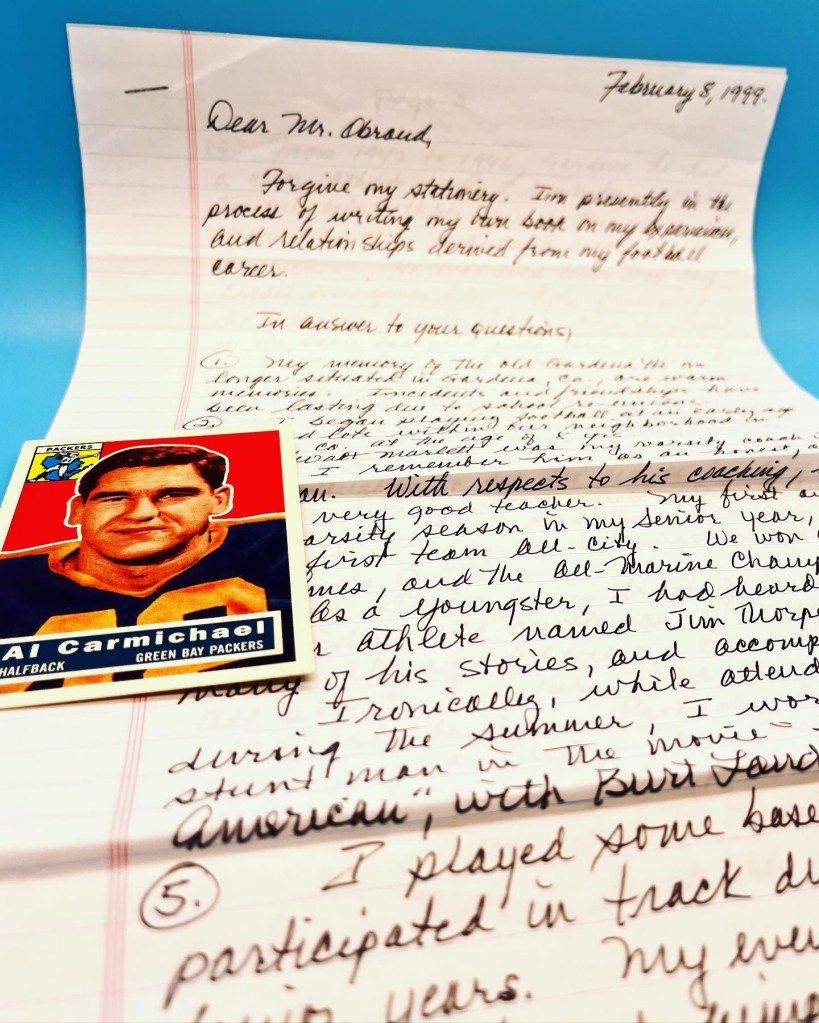 February 8, 1999.
Dear Mr. Obraud,
Forgive my stationery. I'm presently in the
process of writing my own book on my experiences,
and relationships derived from my football
career.
In answer to your questions,
1. My memory of the old Gardena Hi no
longer situated in Gardena, Ca., are warm
memories. Incidents and friendships have
been lasting due to school reunions.
2. I began playing football at an early age
lots within our neighborhood in
Ca. at the age of 8
Walt Marlett was my varsity coach
I remember him as an honest,
With respects to his coaching,
very good teacher. My first
season in my senior year,
first team all-city. We won
and the all-Marine
As a youngster, I had heard
athlete named Jim Thorpe
many of his stories, and
Ironically, while
during the summer, I
stunt man in the movie
American", with Burt
5. I played some
participated in track
years. My
PACKERS
Al Carmichael
HALFBACK GREEN BAY PACKERS